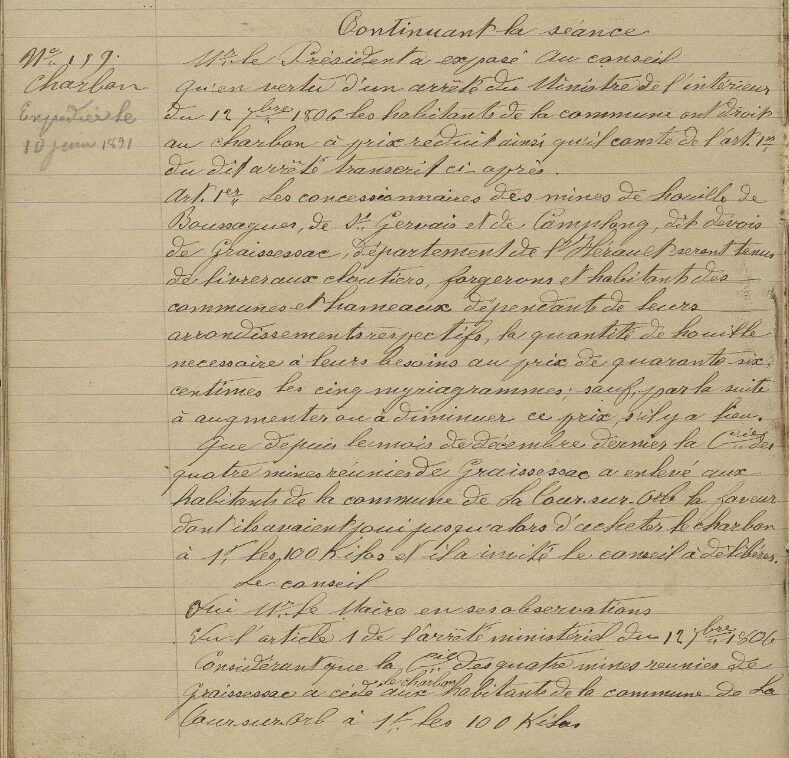 Continuant la séance
No 119.
Charbon
Expédiée le
10 juin 1891
Mr. le Président a exposé au conseil
qu'en vertu d'un arrêté du Ministre de l'intérieur
du 12 7bre 1806 les habitants de la commune ont droit
au charbon à prix reduit ainsi qu'il conste de l'art. 1er
du dit arrêté transcrit ci-après.
Art. 1er Les concessionnaires des mines de houille de
Boussagues, de St. Gervais et de Camplong, dit devois
de Graissessac, département de l'Hérault seront tenus
de livrer aux cloutiers, forgerons et habitants des
communes et hameaux dépendants de leurs
arrondissements respectifs, la quantité de houille
necessaire à leurs besoins au prix de quarante six
centimes les cinq myriagrammes; sauf, par la suite
à augmenter ou à diminuer ce prix, s'il y a lieu.
Que depuis le mois de décembre dernier la Cie des
quatre mines réunies de Graissessac a enlevé aux
habitants de la commune de La Tour-sur-Orb la faveur
dont ils avaient joui jusqu'alors d'acheter le charbon
à 1f les 100 Kilos et il a invité le conseil à délibérer.
Le conseil
Ouï Mr. le Maire en ses observations
Vu l'article 1 de l'arrêté ministériel du 12 7bre 1806
Considérant que la Cie des quatre mines reunies de
Graissessac a cédé le charbon aux habitants de la commune de La
Tour-sur-Orb à 1f les 100 Kilos